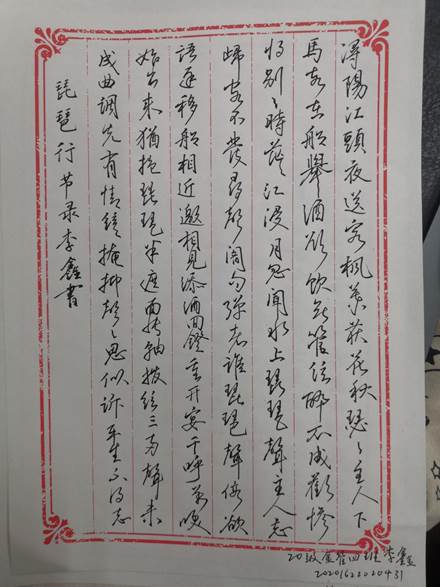 潯陽江頭夜送客楓葉荻花秋瑟々主人下
馬客在船舉酒欲飲無管弦醉不成歡慘
將別々時茫江浸月忽聞水上琵琶聲主人忘
歸客不發尋聲闇問彈者誰琵琶聲停欲
語遲移船相近邀相見添酒回燈重開宴千呼萬喚
始出來猶抱琵琶半遮面轉軸撥絃三兩聲未
成曲調先有情絃掩抑聲々思似訴平生不得志
琵琶行节录李鑫書
20级金管四班 李鑫